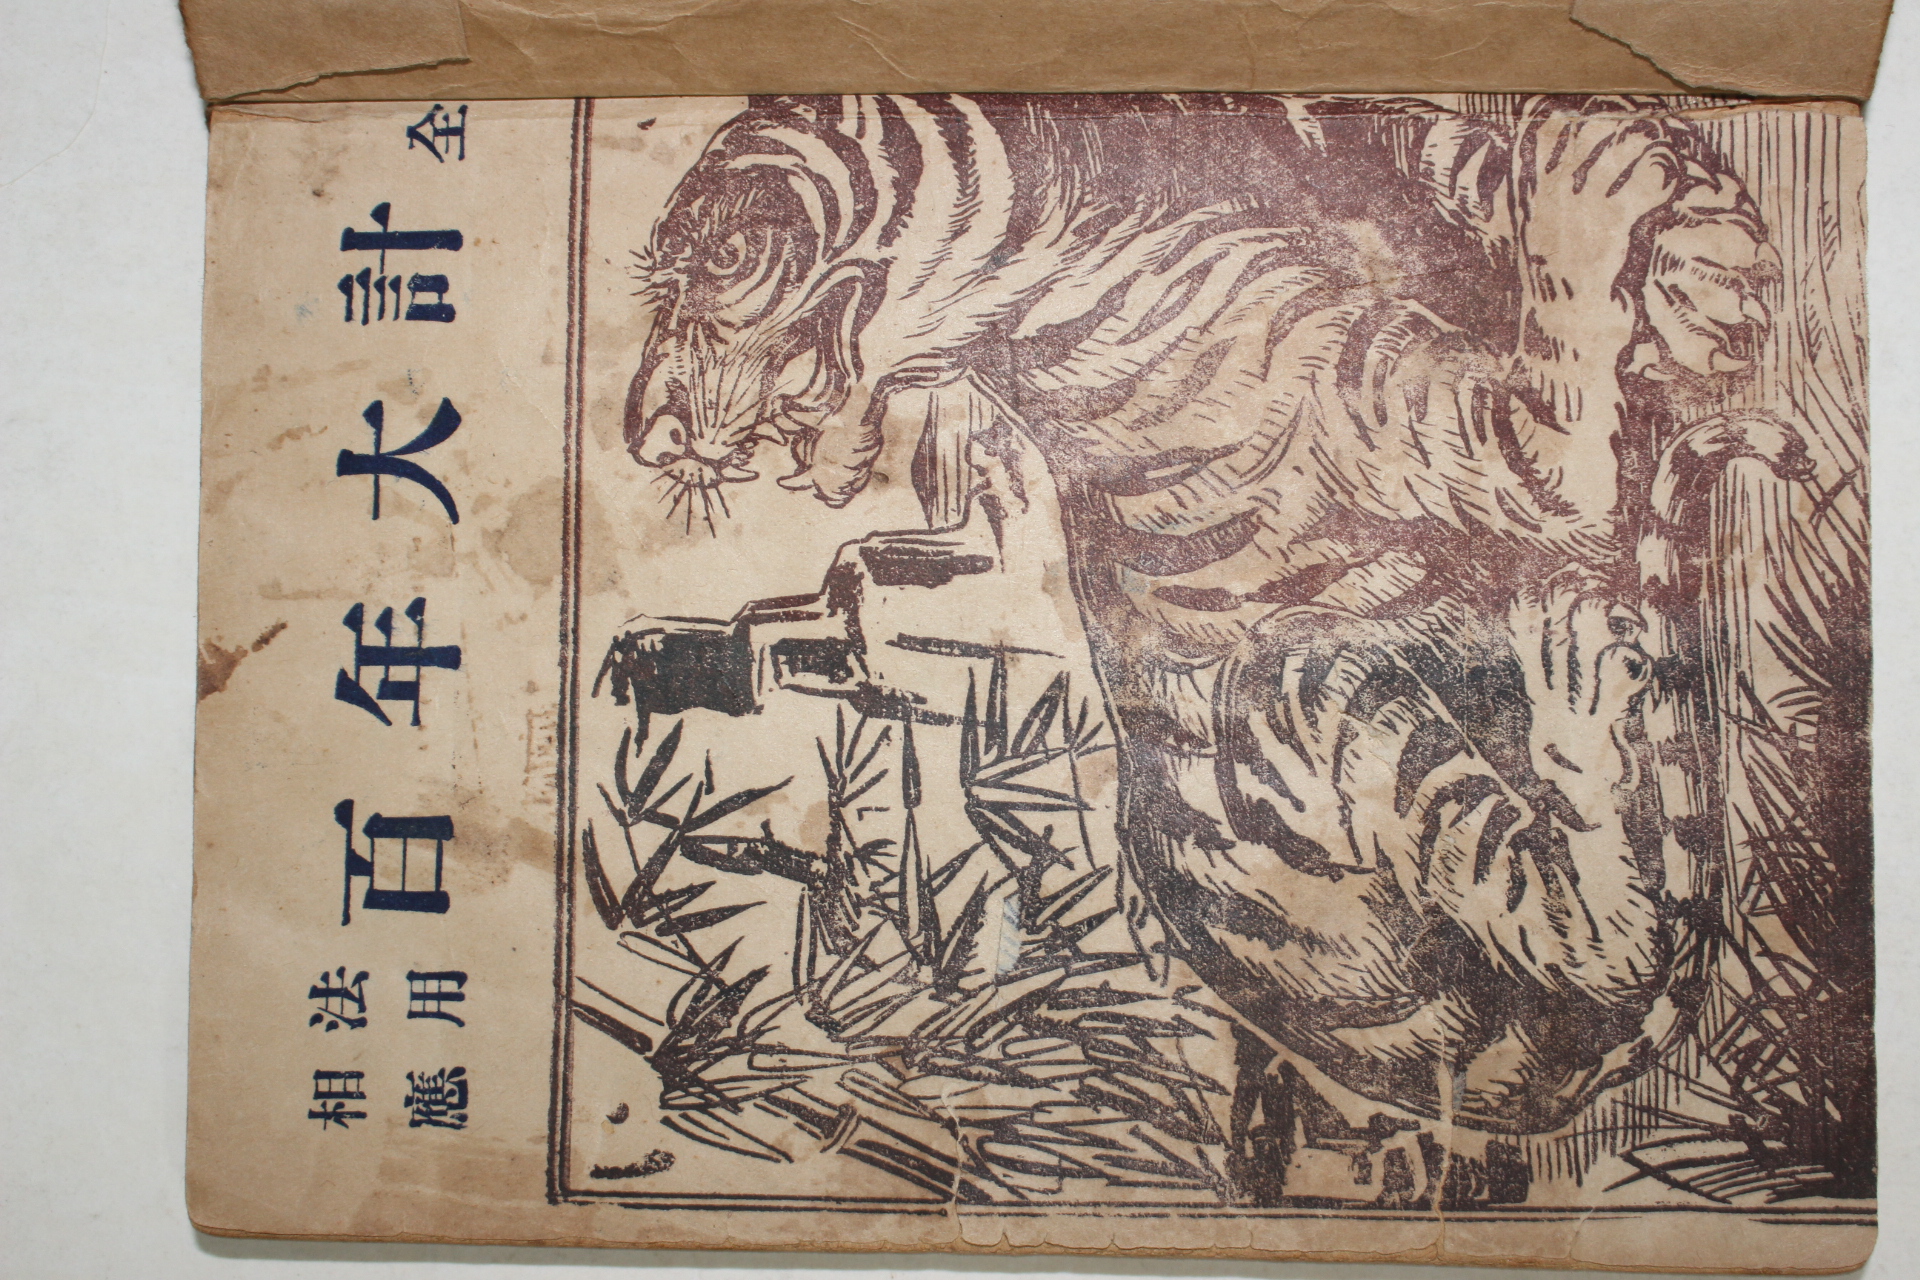 相法
應用
百年大計 全